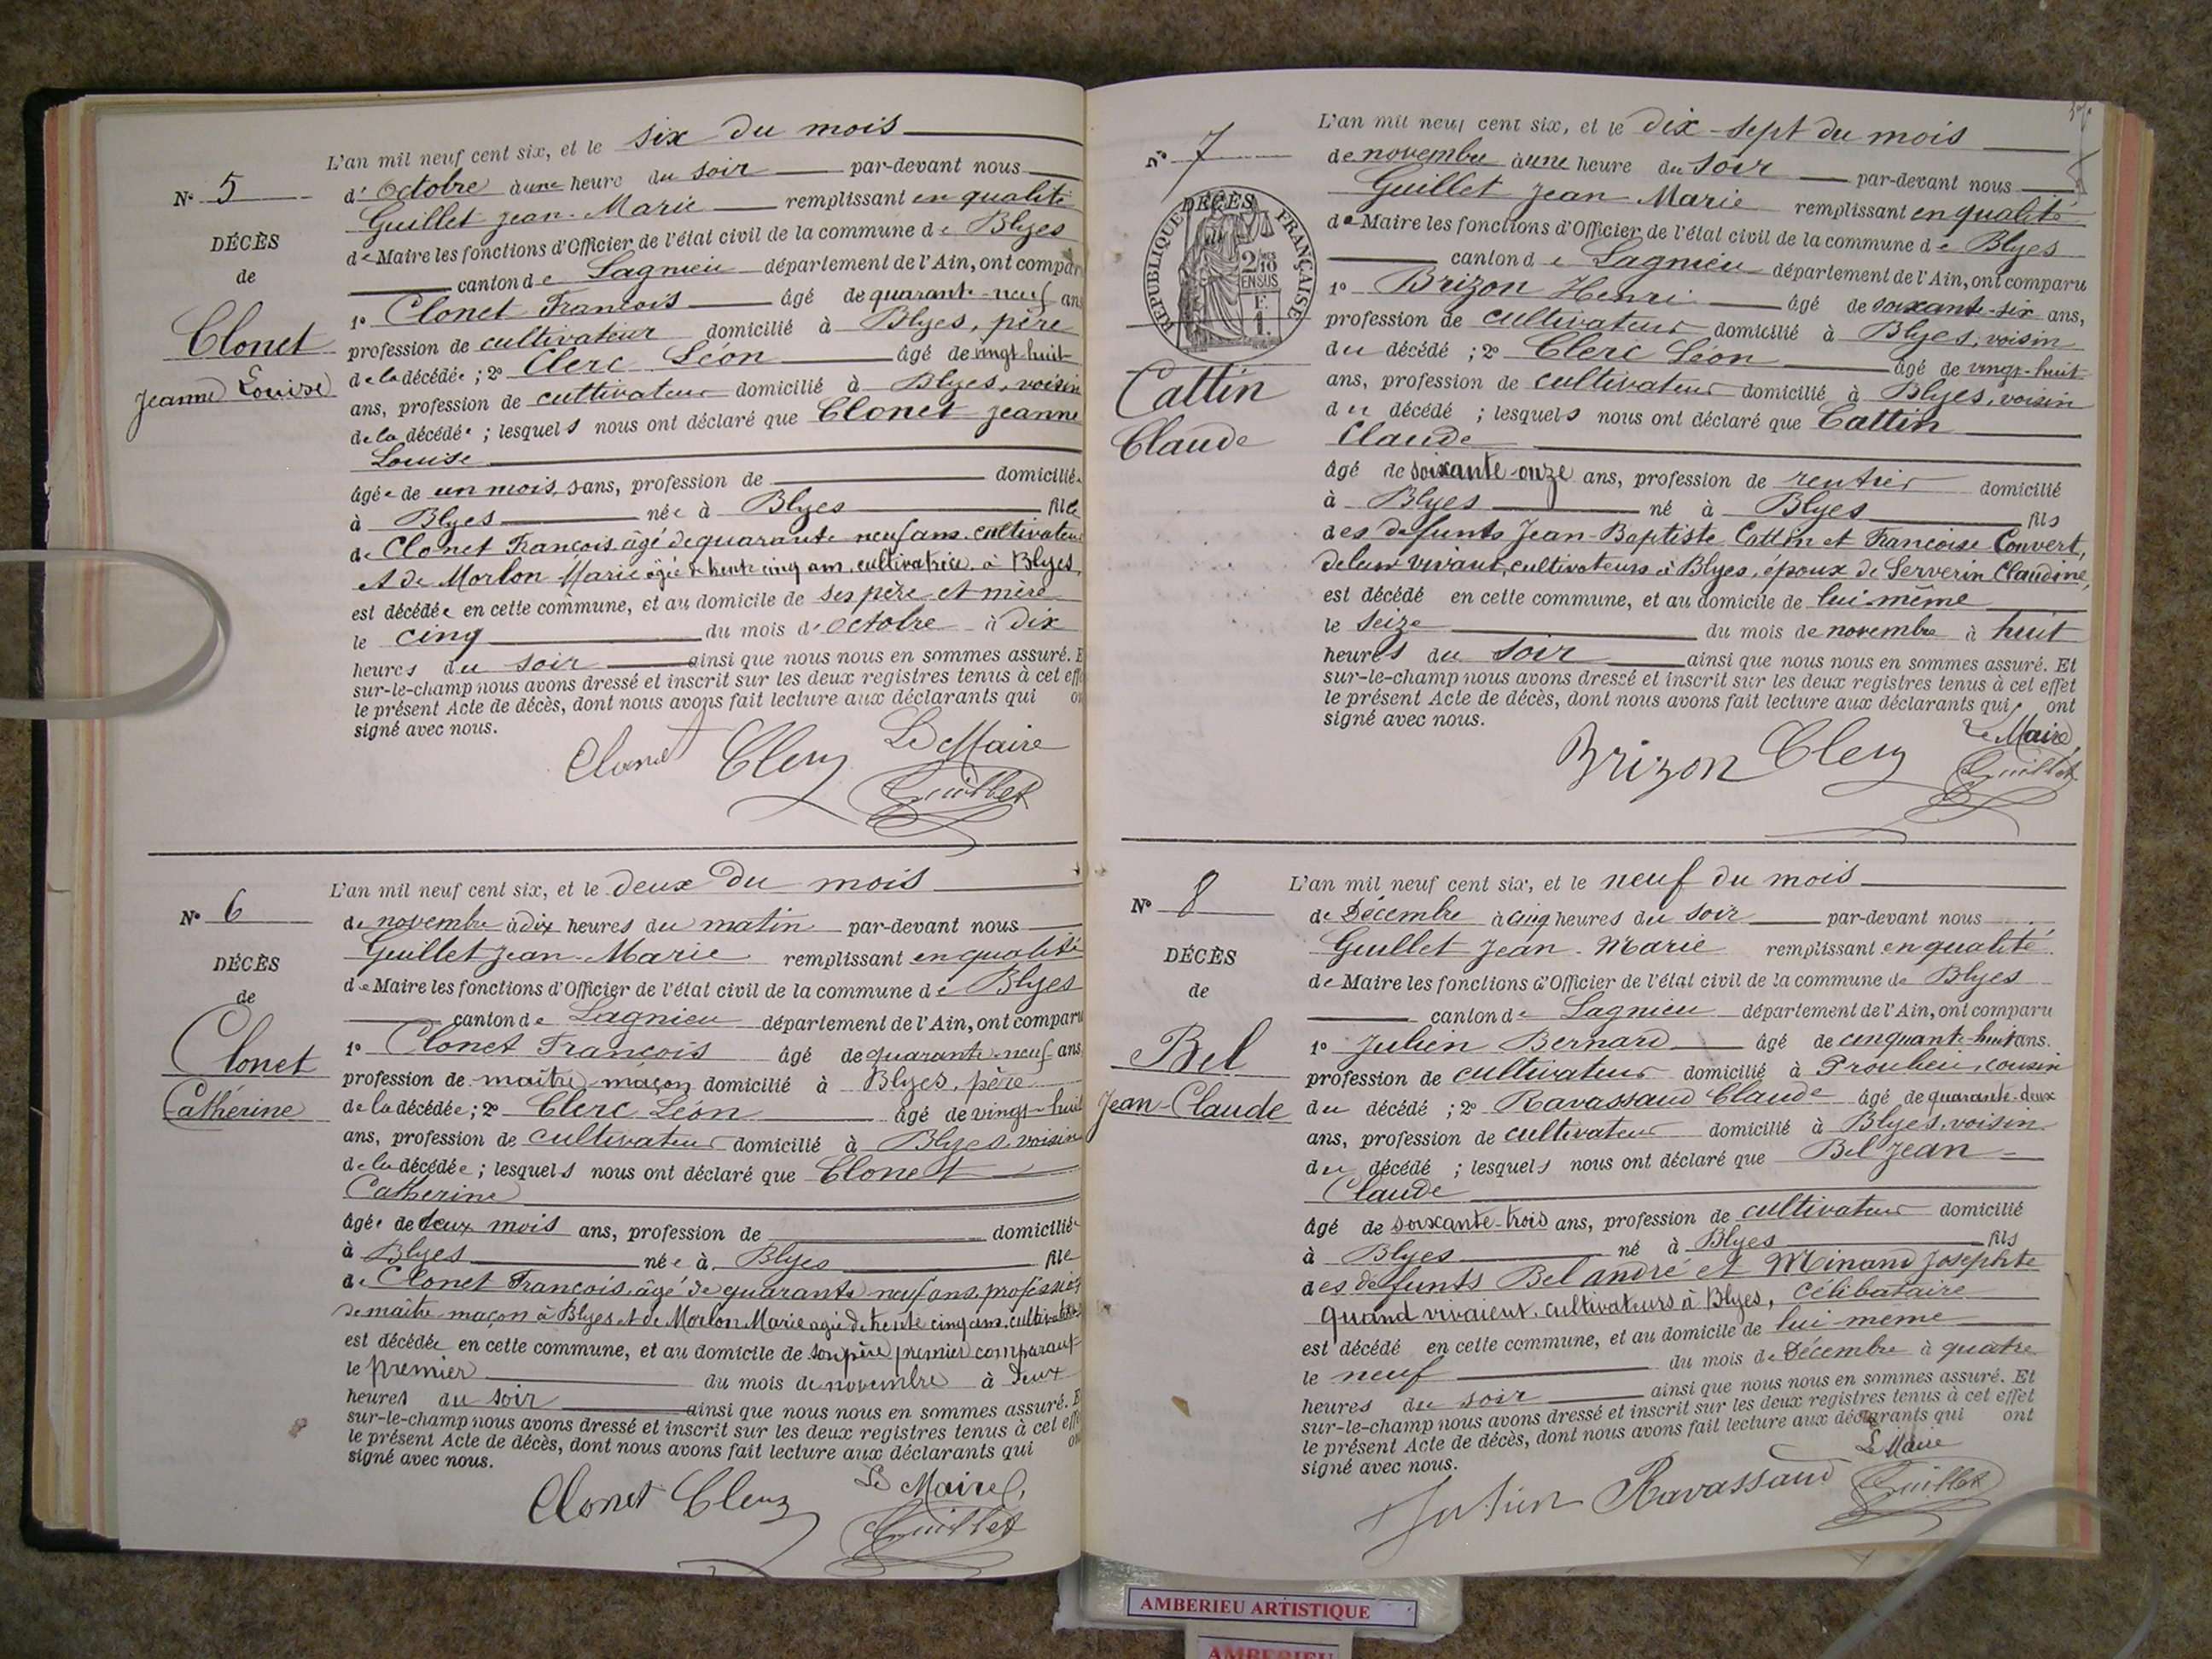 L'an mil neuf cent six, et le six du mois
N° 5
d'Octobre à une heure du soir par-devant nous
Guillet Jean-Marie remplissant en qualité
DÉCÈS
de Maire les fonctions d'Officier de l'état civil de la commune de Blyes
de
canton de Lagnieu département de l'Ain, ont comparu
1° Clonet François âgé de quarante-neuf ans
Clonet
profession de cultivateur domicilié à Blyes, père
de la décédée ; 2° Clerc Léon âgé de vingt-huit
Jeanne Louise
ans, profession de cultivateur domicilié à Blyes, voisin
de la décédée ; lesquels nous ont déclaré que Clonet Jeanne
Louise
âgée de un mois, sans, profession de domiciliée
à Blyes née à Blyes fille
de Clonet François âgé de quarante neuf ans cultivateur
et de Morlon Marie âgée de trente cinq ans, cultivatrice à Blyes,
est décédée en cette commune, et au domicile de ses père et mère
le cinq du mois d'octobre à dix
heures du soir ainsi que nous nous en sommes assuré. E
sur-le-champ nous avons dressé et inscrit sur les deux registres tenus à cet effe
le présent Acte de décès, dont nous avons fait lecture aux déclarants qui on
signé avec nous.
Clonet Clerc Le Maire
Guillet
L'an mil neuf cent six, et le deux du mois
N° 6
de novembre à dix heures du matin par-devant nous
Guillet Jean-Marie remplissant en qualité
DÉCÈS
de Maire les fonctions d'Officier de l'état civil de la commune de Blyes
de
canton de Lagnieu département de l'Ain, ont comparu
1° Clonet François âgé de quarante-neuf ans
Clonet
profession de maître maçon domicilié à Blyes, père
Catherine
de la décédée ; 2° Clerc Léon âgé de vingt-huit
ans, profession de cultivateur domicilié à Blyes, voisin
de la décédée ; lesquels nous ont déclaré que Clonet
Catherine
âgée de deux mois ans, profession de domiciliée
à Blyes née à Blyes fille
de Clonet François, âgé de quarante neuf ans, profession
de maître maçon à Blyes et de Morlon Marie agée de trente cinq ans, cultivatrice
est décédée en cette commune, et au domicile de son père premier comparant
le premier du mois de novembre à deux
heures du soir ainsi que nous nous en sommes assuré. E
sur-le-champ nous avons dressé et inscrit sur les deux registres tenus à cet effe
le présent Acte de décès, dont nous avons fait lecture aux déclarants qui on
signé avec nous.
Clonet Clerc Le Maire,
Guillet
L'an mil neuf cent six, et le dix-sept du mois
N° 7
de novembre à une heure du soir par-devant nous
Guillet Jean Marie remplissant en qualité
DÉCÈS
RÉPUBLIQUE FRANÇAISE
2/10 EN SUS
F. 1.
de Maire les fonctions d'Officier de l'état civil de la commune de Blyes
canton de Lagnieu département de l'Ain, ont comparu
1° Brizon Henri âgé de soixante-six ans,
profession de cultivateur domicilié à Blyes, voisin
du décédé ; 2° Clerc Léon âgé de vingt-huit
Cattin
ans, profession de cultivateur domicilié à Blyes, voisin
du décédé ; lesquels nous ont déclaré que Cattin
Claude
Claude
âgé de soixante-onze ans, profession de rentier domicilié
à Blyes né à Blyes fils
des défunts Jean-Baptiste Cattin et Françoise Convert,
de leur vivant, cultivateurs à Blyes, époux de Serverin Claudine,
est décédé en cette commune, et au domicile de lui même
le seize du mois de novembre à huit
heures du soir ainsi que nous nous en sommes assuré. Et
sur-le-champ nous avons dressé et inscrit sur les deux registres tenus à cet effet
le présent Acte de décès, dont nous avons fait lecture aux déclarants qui ont
signé avec nous.
Brizon Clerc Le Maire,
Guillet
L'an mil neuf cent six, et le neuf du mois
N° 8
de Décembre à cinq heures du soir par-devant nous
Guillet Jean-Marie remplissant en qualité
DÉCÈS
de Maire les fonctions d'Officier de l'état civil de la commune de Blyes
de
canton de Lagnieu département de l'Ain, ont comparu
1° Julien Bernard âgé de cinquante-huit ans.
Bel
profession de cultivateur domicilié à Proulieu, cousin
Jean-Claude
du décédé ; 2° Ravassaud Claude âgé de quarante-deux
ans, profession de cultivateur domicilié à Blyes, voisin
du décédé ; lesquels nous ont déclaré que Bel Jean
Claude
âgé de soixante-trois ans, profession de cultivateur domicilié
à Blyes né à Blyes fils
des défunts Bel André et Minand Josephte
quand vivaient cultivateurs à Blyes, célibataire
est décédé en cette commune, et au domicile de lui même
le neuf du mois de Décembre à quatre
heures du soir ainsi que nous nous en sommes assuré. Et
sur-le-champ nous avons dressé et inscrit sur les deux registres tenus à cet effet
le présent Acte de décès, dont nous avons fait lecture aux déclarants qui ont
signé avec nous.
Julien Ravassaud Le Maire
Guillet
AMBERIEU ARTISTIQUE
AMBERIEU